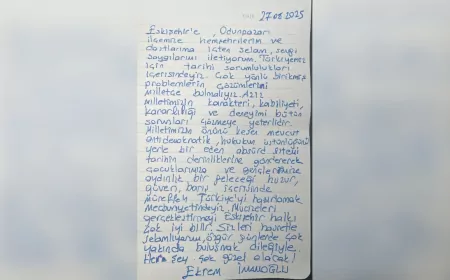 27.08.2025
Eskişehir'e, Odunpazarı
ilçemize hemşehrilerim ve
dostlarıma içten selam, sevgi
saygılarımı iletiyorum. Türkiyemiz
için tarihi sorumlulukları
içerisindeyiz. Çok yönlü birikmiş
problemlerin çözümlerini
milletçe bulmalıyız. Aziz
milletimizin karakteri, kabiliyeti,
kararlılığı ve deneyimi bütün
sorunları çözmeye yeterlidir.
Milletimizin önünü kesen mevcut
antidemokratik, hukukun üstünlüğünü
yerle bir eden absürd sistemi
tarihin derinliklerine göndererek
çocuklarımıza ve gençlerimize
aydınlık bir geleceği huzur,
güven, barış içerisinde
müreffeh Türkiye'yi hazırlamak
mecburiyetindeyiz. Mucizeleri
gerçekleştirmeyi Eskişehir halkı
çok iyi bilir. Sizleri hasretle
selamlıyorum, özgür günlerde çok
yakında buluşmak dileğiyle,
Her şey çok güzel olacak!
Ekrem İMAMOĞLU